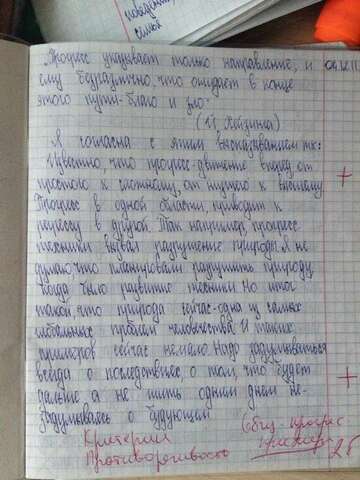 поведени
семья
"Прогресс указывает только направление, и
ему безразлично, что ожидает в конце
этого пути-благо и зло"
(И. Хейзинга)
Я согласна с этим высказыванием тк:
что прогресс-движение вперед от
простого к сложному, от низшего к высшему
Прогресс в одной области, приводит к
регрессу в другой. Так например, прогресс
техники, вызвал разрушение природы. Я не
думаю что планировали разрушить природу
когда было развитие техники. Но итог
такой, что природа сейчас-одна из самых
глобальных проблем человечества. И таких
примеров сейчас немало. Надо задумываться
всегда о последствиес, о том, что будет
дальше, а не жить одним днем не-
задумываясь о будующем.
Критерии
Противоречивость
Общ. прогрес
2б